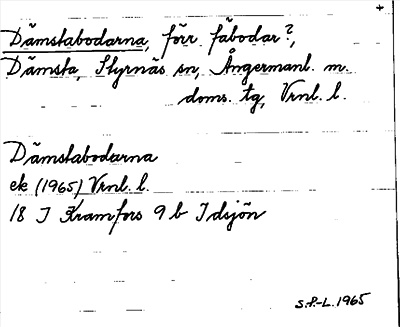 +
Dämstabodarna, förr fäbodar?,
Dämsta, Styrnäs sn, Ångermanl. m.
doms. tg, Vrnl. l.
Dämstabodarna
ek (1965) Vrnl. l.
18 I Kramfors 9 b Idsjön
S.P-L. 1965